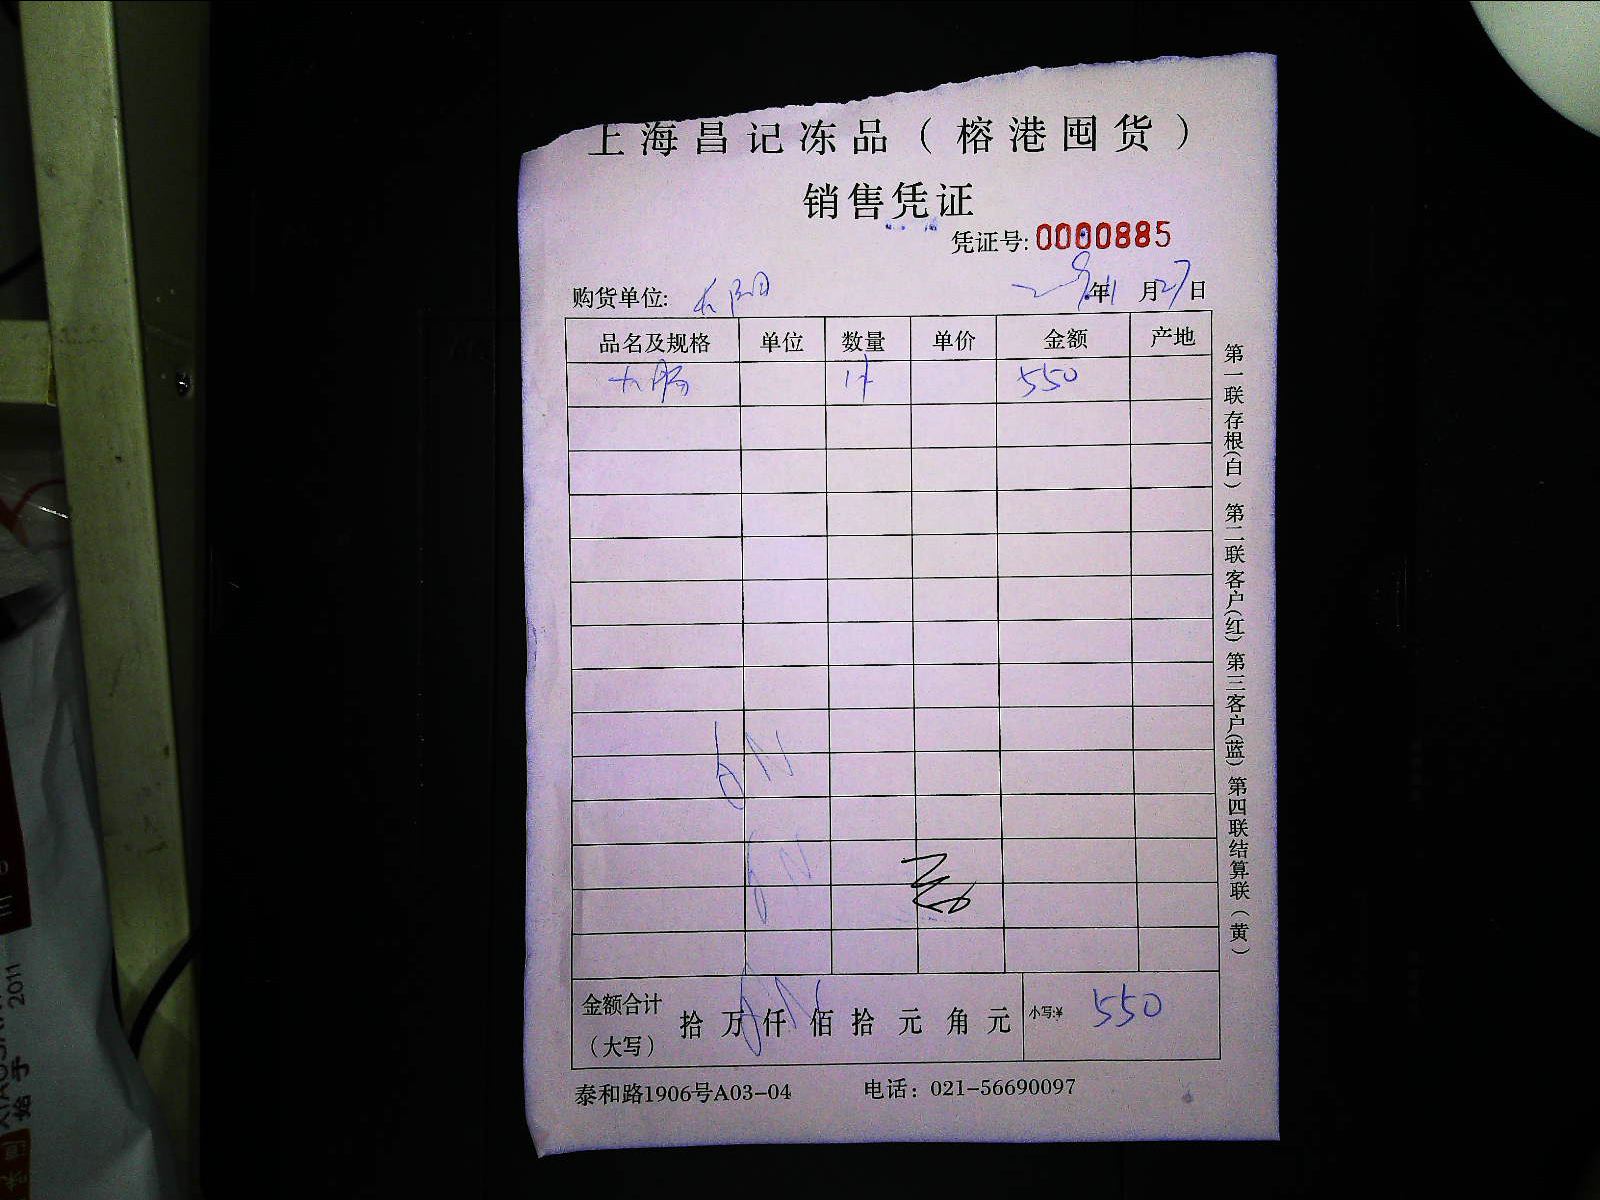 上海昌记冻品（榕港囤货）
销售凭证
凭证号: 0000885
购货单位:
年1月27日
品名及规格 单位 数量 单价 金额 产地
大肠 1件 550
金额合计（大写） 拾 万 仟 佰 拾 元 角 元 小写:¥ 550
泰和路1906号A03-04 电话：021-56690097
第一联存根(白) 第二联客户(红) 第三客户(蓝) 第四联结算联(黄)
2011
始于